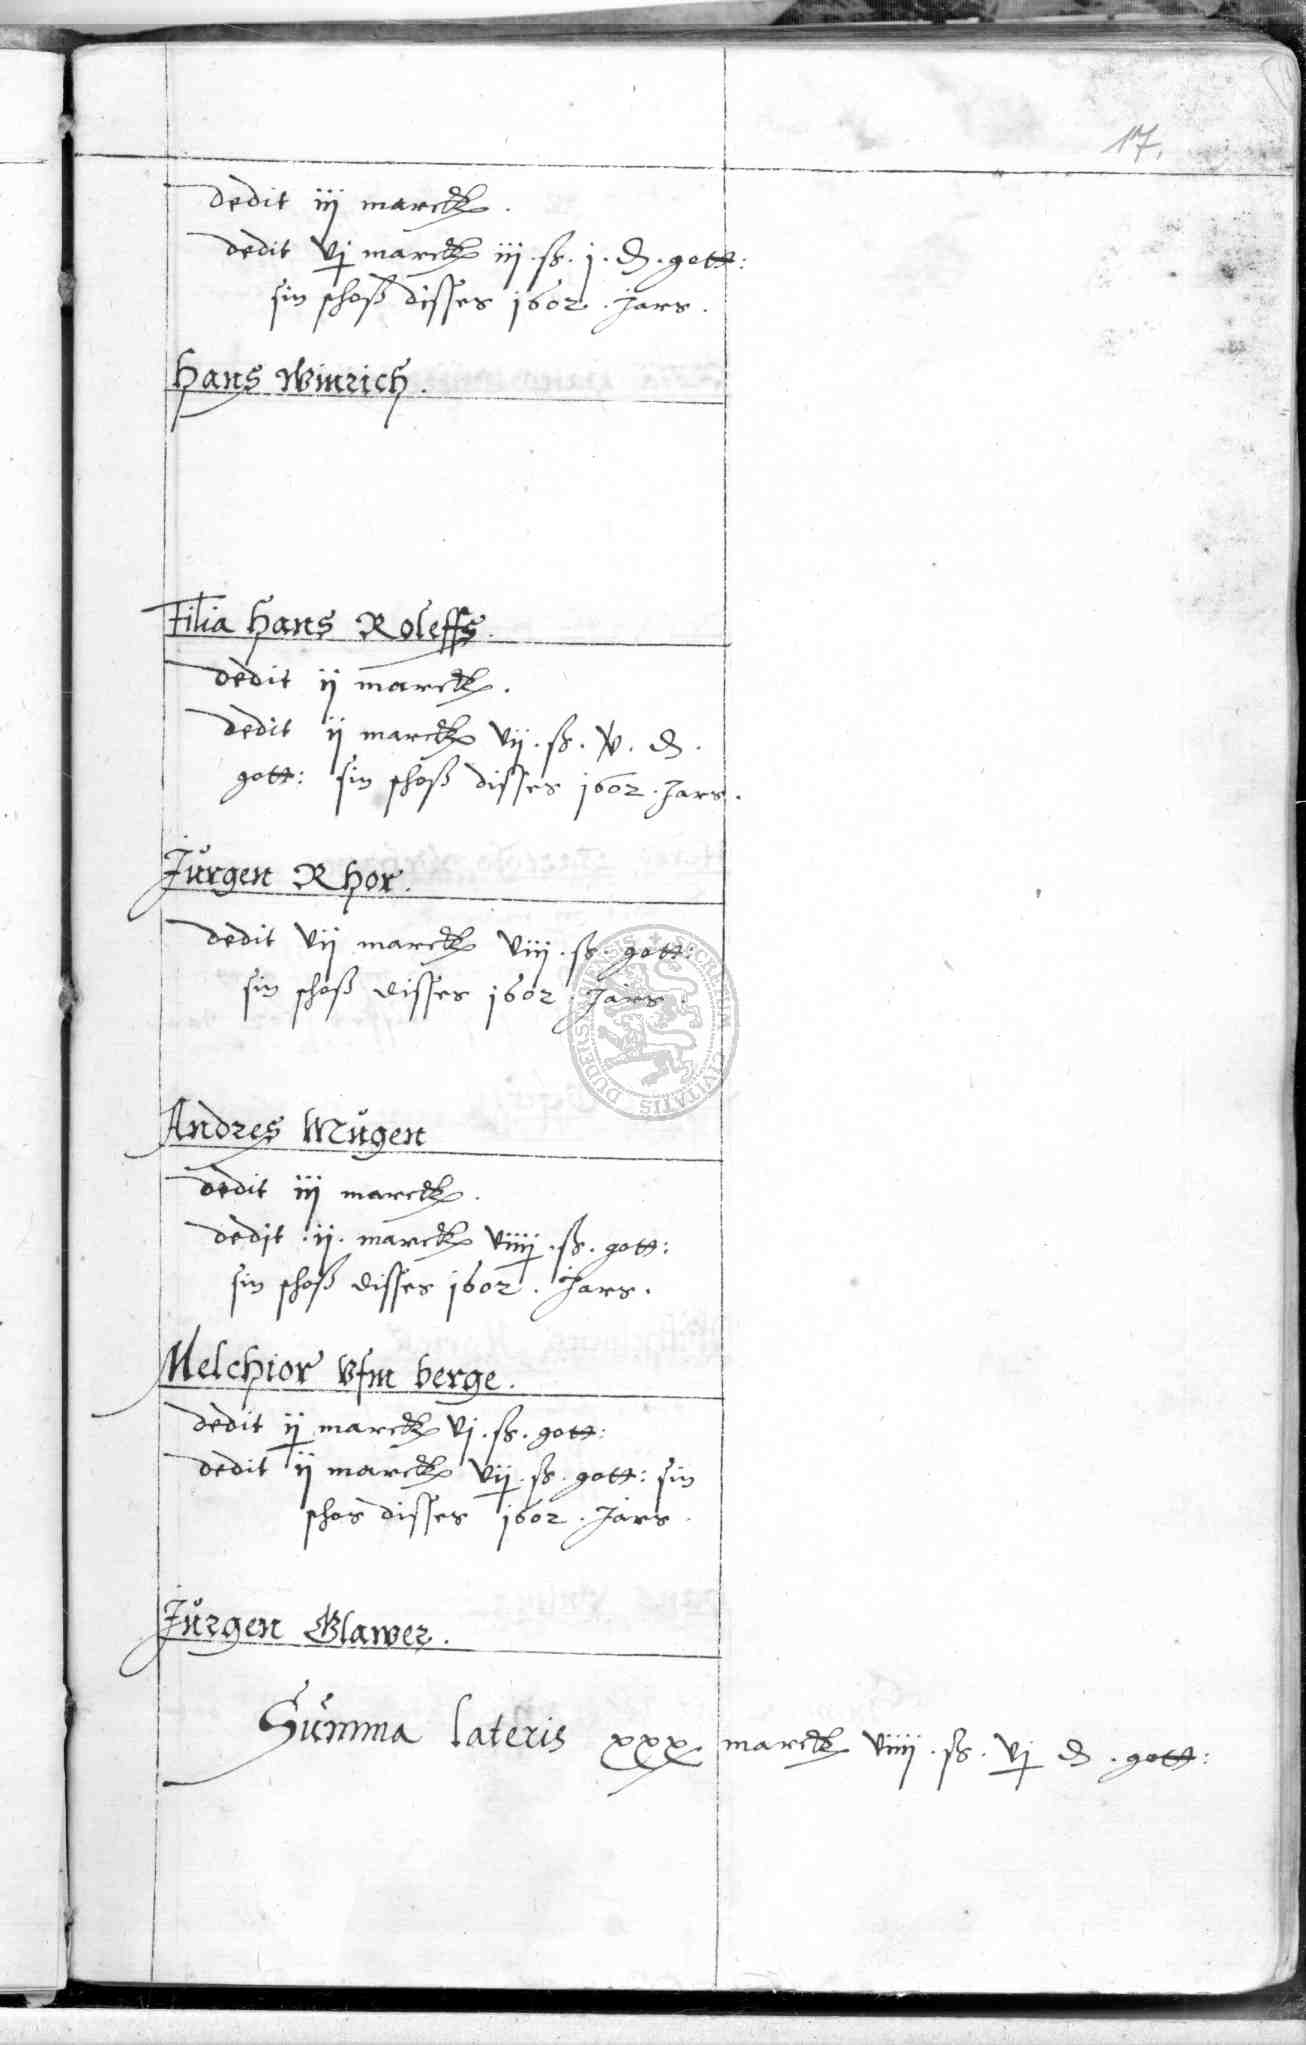 17.
dedit iij marck.
dedit vj marck iij. ß. j. d. gott:
sin schoß disses 1602. Jars.
Hans Winrich.
Filia Hans Roleffs.
dedit ij marck.
dedit ij marck vij. ß. v. d.
gott: sin schoß disses 1602. Jars.
Jürgen Rhor.
dedit vij marck viij. ß. gott:
sin schoß disses 1602. Jars.
SECRETUM CIVITATIS DUDERSTADENSIS
Andres Mügen
dedit iij marck.
dedit .ij. marck viiij. ß. gott:
sin schoß disses 1602. Jars.
Melchior Vfm berge.
dedit ij marck vj. ß. gott:
dedit ij marck vij. ß. gott: sin
schos disses 1602. Jars.
Jürgen Glawer.
Summa lateris xxx. marck viiij. ß. vj d. gott: